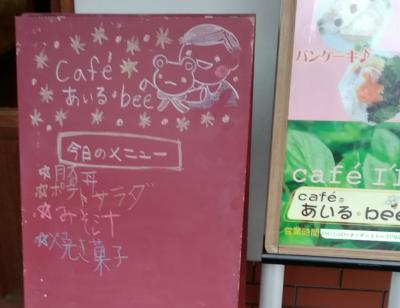 Café
あいる・bee
今日のメニュー
☆豚丼
☆ポテトサラダ
☆みそ汁
☆焼き菓子
パンケーキ♪
café I
caféのあいる・bee
営業時間